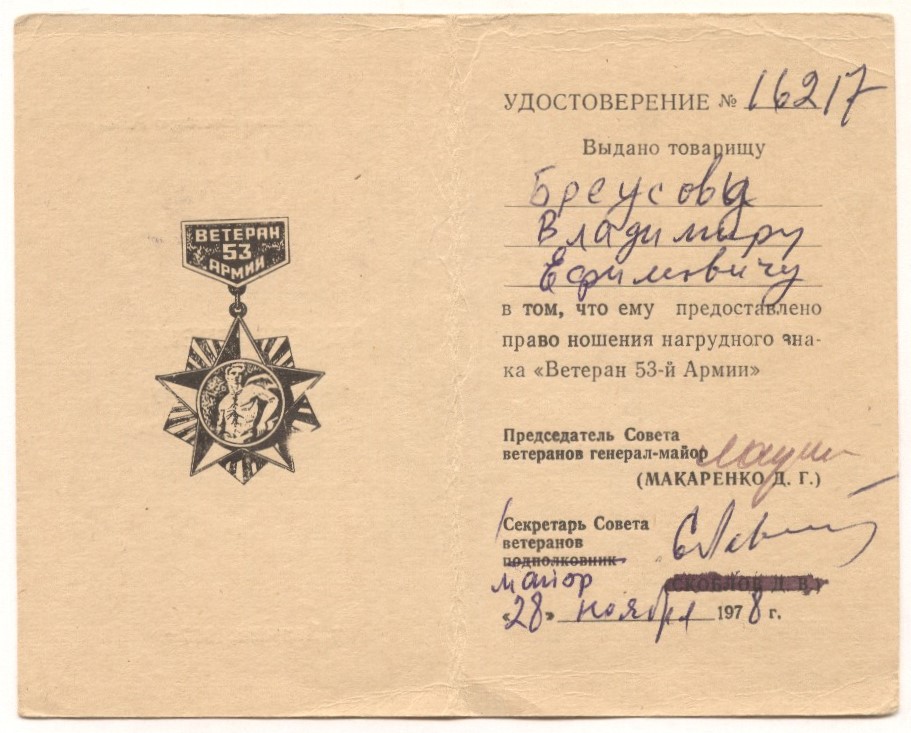 ВЕТЕРАН
53
АРМИИ
УДОСТОВЕРЕНИЕ № 16217
Выдано товарищу
Бреусову
Владимиру
Ефимовичу
в том, что ему предоставлено
право ношения нагрудного зна-
ка «Ветеран 53-й Армии»
Председатель Совета
ветеранов генерал-майор
(МАКАРЕНКО Д. Г.)
Секретарь Совета
ветеранов
подполковник
майор
СКОБЛОВ Д. В.
«28» ноября 1978 г.